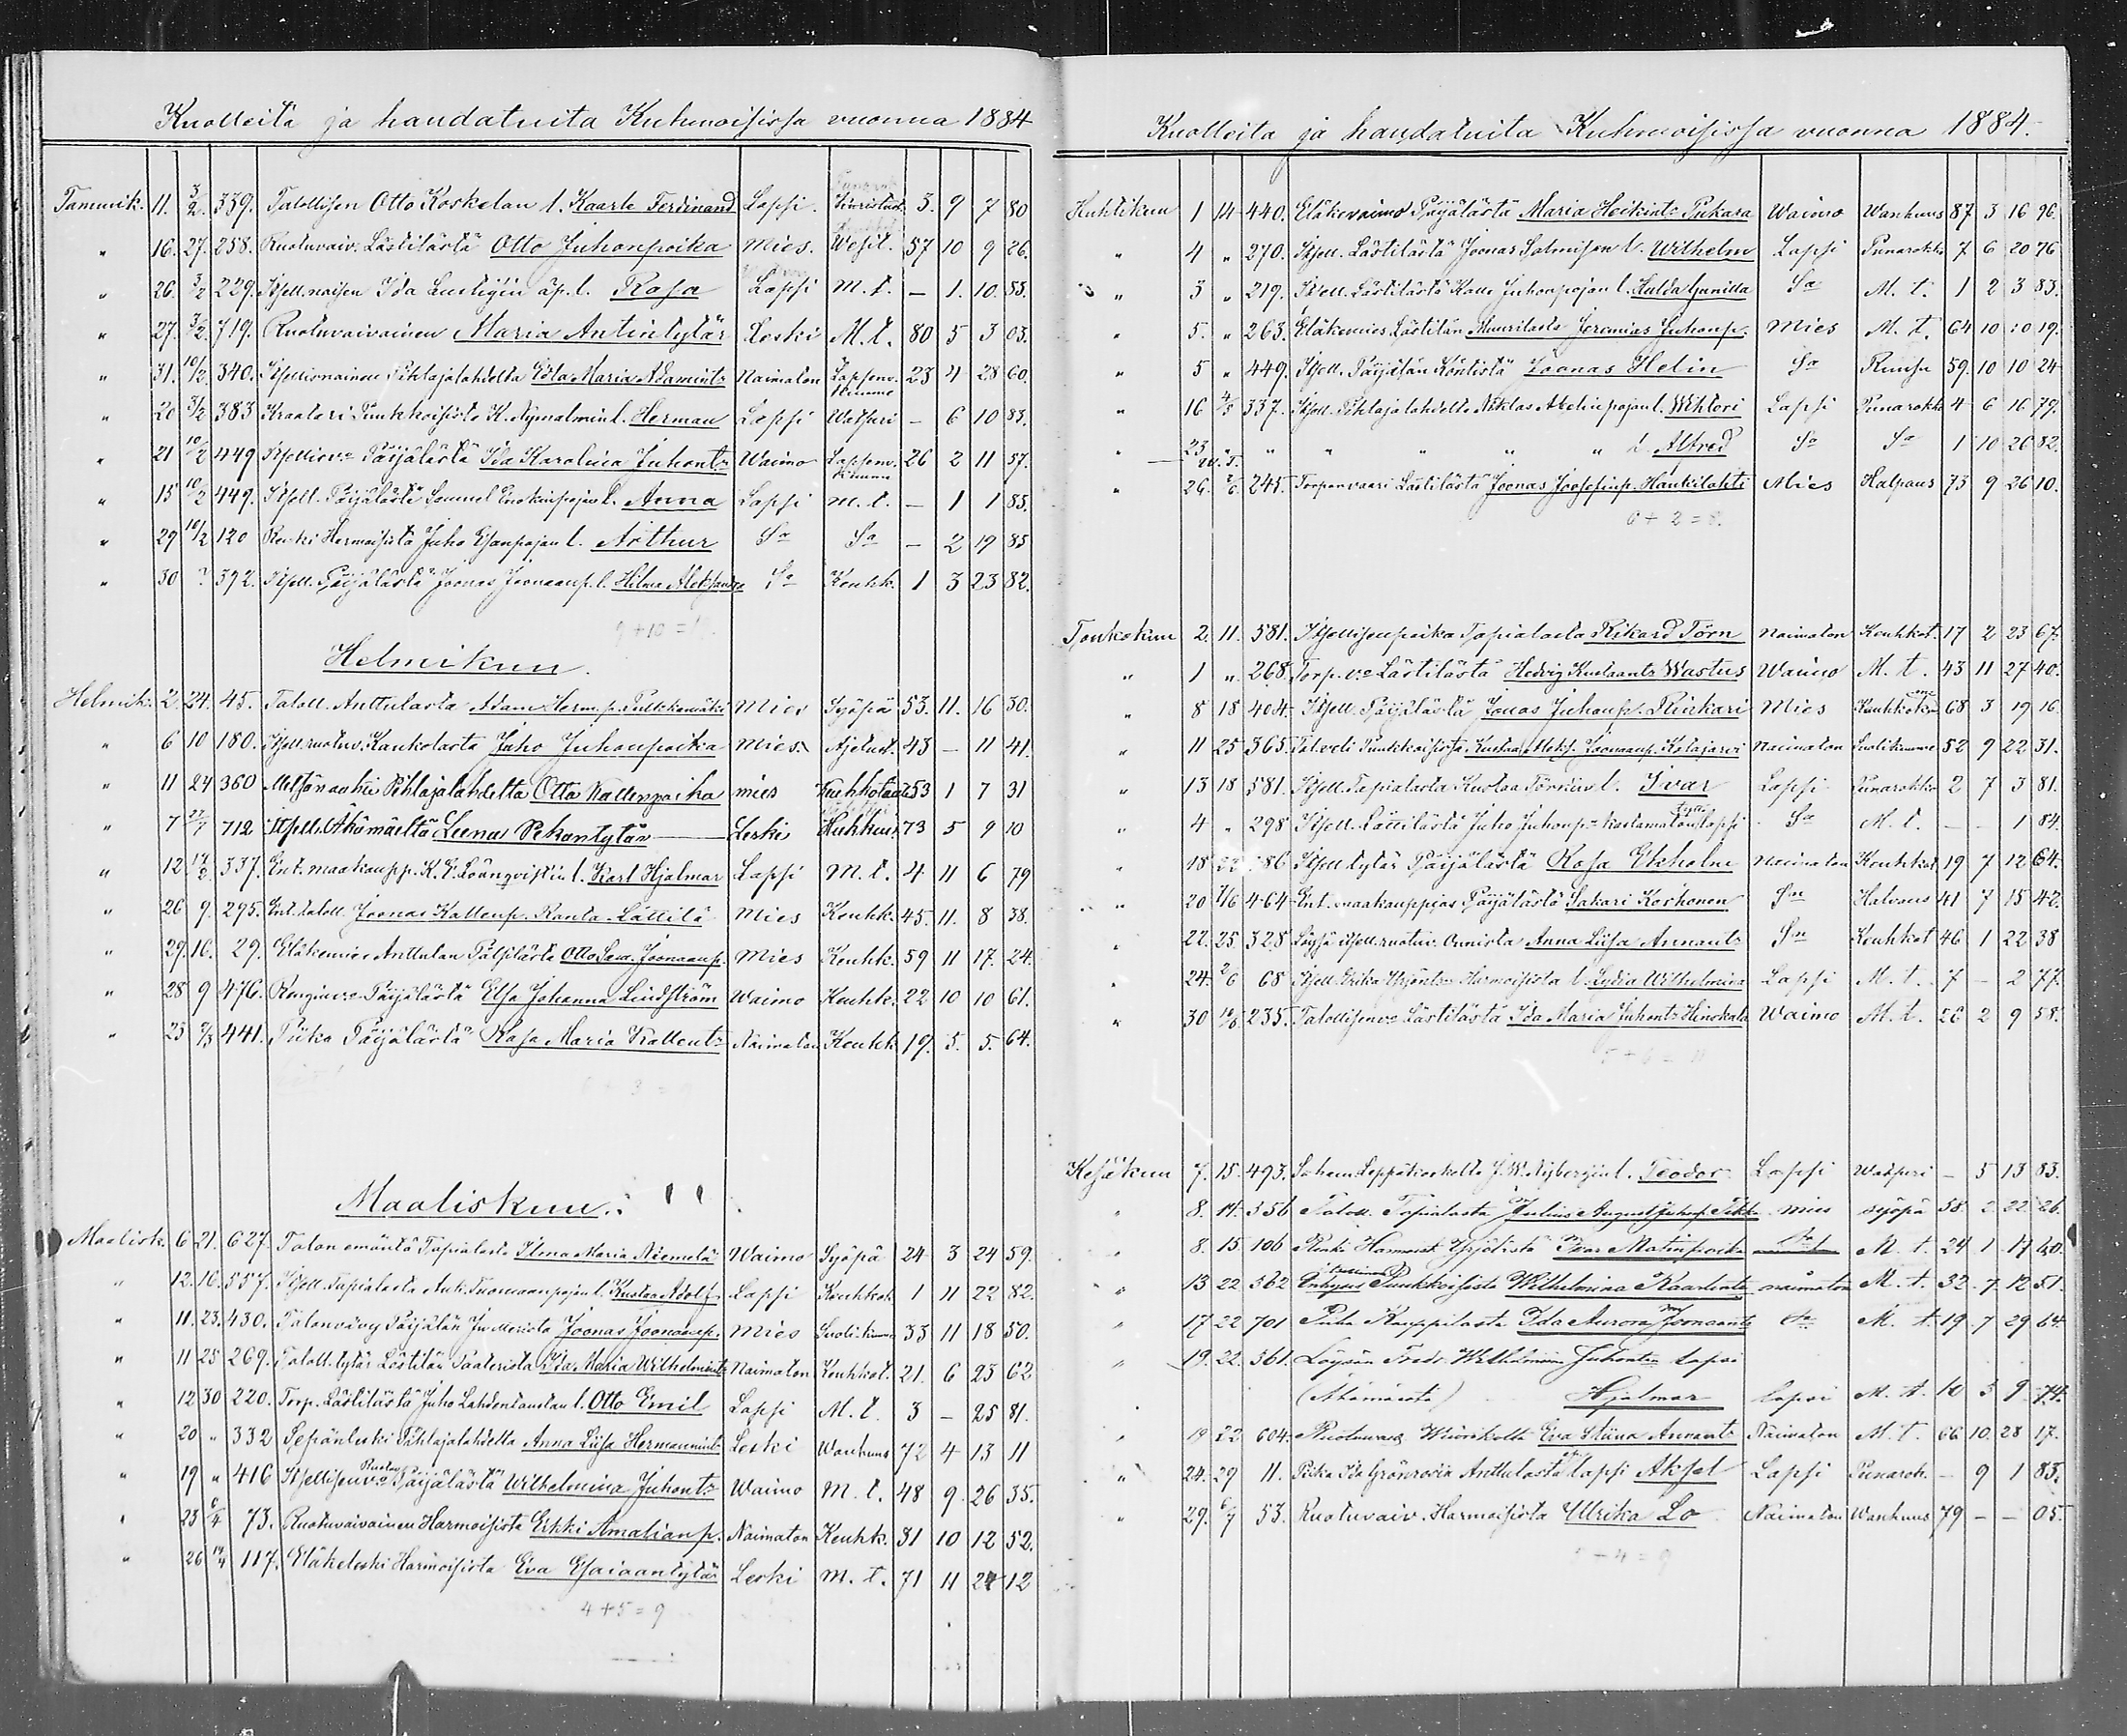 Kuolleita ja haudatuita Kuhmoisissa vuonna 1884
Tammik. 11. 3/2. 339. Talollisen Otto Koskelan l. Kaarle Ferdinand Lapsi. 3. 9 7 80
" 16. 27. 258. Ruotuvaiv. Lästilästä Otto Juhonpoika Mies. Wesit. 57 10 9 26.
" 26. 3/2 229. Itsell. naisen Ida äp. l. Rosa Lapsi M. t. — 1. 10. 83.
" 27. 3/2. 719. Ruotuvaivainen Maria Antintytär Leski M. t. 80 5 3 03.
" 31. 10/2. 340. Itsellisnainen Pihlajalahdelta Edla Maria Adamint: Naimaton Lapsenv. 23 4 28 60.
" 20 3/2 383 Kraatari Puukkoisista K. Nymalmin l. Herman Lapsi Watsuri — 6 10 83.
" 21 10/2 449 Itsellisv:o Päijälästä Ida Karolina Juhont: Waimo Lapsenv. 26 2 11 57.
" 15 10/2 449. Itsell. Päijälästä Samuel l. Anna Lapsi M. t. — 1 1 83.
" 29 10/2 120 Renki Harmoisista Juho Esanpojan l. Arthur S:a S:a — 2 19 83
" 30 ? 392. Itsell. Päijälästä Joonas Joonaanp. l. Hilma Aleksandra S:a Keuhk. 1 3 23 82.
9 + 10 = 19.
Helmikun.
Helmik. 2. 24. 45. Taloll. Anttulasta Adam Herm.p. Pullikamäki Mies Syöpä 53. 11. 16 30.
" 6 10 180. Itsell. ruotuv. Kaukolasta Juho Juhonpoika Mies. Ajetust. 43 — 11 41.
" 11 24 360 Pihlajalahdelta Otto Kallenpoika mies Keuhkotaudi 53 1 7 31
" 7 712 Itsell. Äkämäeltä Leena Pekantytär Leski 73 5 9 10
" 12 17/2. 337. Ent. maakaupp. K. E. Löunqvistin l. Karl Hjalmar Lapsi M. t. 4 11 6 79
" 26 9. 295. Ent. taloll. Joonas Kallenp. Ranta-Lättilä Mies Keuhk. 45. 11. 8 38.
" 29. 16. 29. Eläkemies Anttulan Pälsilästä Otto Joonaanp. Mies Keuhk. 59 11 17. 24.
" 28 9 476. Renginv:o Päijälästä Elsa Johanna Lindström Waimo Keuhk. 22 10 10 61.
" 23 2/3 441. Piika Päijälästä Rosa Maria Kallent: Naimaton Keuhk. 19. 5. 5. 64.
6 + 3 = 9
Maaliskun.
Maalisk. 6 21. 627. Talon emäntä Tapialasta Elena Maria Niemelä Waimo Syöpä 24 3 24 59.
" 12. 16. 557. Itsell. Tapialasta Antti Tuomaanpojan l. Kustaa Adolf Lapsi Keuhkot. 1 11 22 82.
" 11. 23. 430. Talonvävy Päijälän Joonas Joonaanp. Mies Suolitu. 33 11 18 50.
" 11 25 269. Taloll. tytär Lästilän Ida Maria Wilhelmint: Naimaton Keuhkot. 21. 6 23 62
" 12 30 220. Torp. Lästilästä Juho Lahdentaustan l. Otto Emil Lapsi M. t. 3 — 25 81.
" 20 " 332 Sepänleski Pihlajalahdelta Anna Liisa Hermannint. Leski Wanhuus 72 4 13 11
" 19 " 416 Itsellisenv:o Päijälästä Wilhelmina Juhont: Waimo M. t. 48 9. 26 35.
" 23 6/4 73. Ruotuvaivainen Harmoisista Erkki Amalianp. Naimaton Keuhk. 31 10 12 52.
" 26 14/4 117. Eläkeleski Harmoisista Eva Esaiaantytär Leski M. t. 71 11 24 12
4 + 5 = 9
Kuolleita ja haudatuita Kuhmoisissa vuonna 1884.
Huhtikun 1 14 440. Eläkevaimo Päijälästä Maria Heikint: Pukara Waimo Wanhuus 87 3 16 96.
" 4 " 270. Itsell. Lästilästä Joonas Salmisen l. Wilhelm Lapsi Punarokko 7 6 20 76
" 3 " 219. Itsell. Lästilästä Kalle Juhonpojan l. Hulda Gunilla S:a M. t. 1 2 3 83.
" 5. " 263. Eläkemies Lästilän Jeremias Juhonp. Mies M. t. 64 10 10 19.
" 5 " 449. Itsell. Päijälän Joonas Helin S:a 59. 10 10 24
" 16 4/5 337. Itsell. Pihlajalahdelta Niklas l. Wihtori Lapsi Punarokko 4 6 16 79.
" 23 " " " " " " l. Alfred S:a S:a 1 10 26 82.
" 26. 2/6. 245. Torpanvaari Lästilästä Joonas Joosefinp. Haukilahti Mies Halvaus 73 9 26 10.
6 + 2 = 8.
Toukokun 2. 11. 581. Itsellisenpoika Tapialasta Rikard Törn Naimaton Keuhkot. 17 2 23 67.
" 1 " 268. Torp. v:o Lästilästä Hedvig Kustaant: Wastus Waimo M. t. 43 11 27 40.
" 8 18 404. Itsell. Päijälästä Jonas Juhonp. Rinkari Mies 68 3 19 16.
" 11 25 365. Puukkoisista Kustaa Aleks. Joonaanp. Kotajärvi Naimaton 52 9 22 31.
" 13 18 581. Itsell. Tapialasta Kustaa Törnin l. Ivar Lapsi Punarokko 2 7 3 81.
" 4 " 298 Itsell. Lättilästä Juho Juhonp:n kastamaton lapsi S:a M. t. — — 1 84.
" 18 22 186 Itsell. tytär Päijälästä Rosa Ekholm Naimaton Keuhkot 19 7 12 64.
" 20 1/6 464 Ent. maakauppias Päijälästä Sakari Korhonen S:n Halvaus 41 7 15 42.
" 22. 25. 328 Löysä itsell. ruotuv. Anna Liisa Annant: S:n Keuhkot 46 1 22 38
" 24. 2/6 68 Itsell. Erika Yrjönt: Harmoisista l. Lydia Wilhelmina Lapsi M. t. 7 — 2 77.
" 30 235. Talollisenv:o Lästilästä Ida Maria Juhont: Hinokala Waimo M. t. 26 2 9 58.
5 + 6 = 11
Kesäkun 7. 15. 493. Leppäkoskelta J. W. Nybergin l. Teodor Lapsi Watsuri — 5 13 83.
" 8. 14. 556 Taloll. Tapialasta Julius August Juhonp. mies syöpä 58. 2 22 26.
" 8. 15 106 Renki Harmoist. Yrjölästä Ivar Matinpoika M. t. 24 1 17 60.
" 13 22 362 Puukkoisista Wilhelmina Kaarlent: naimaton M. t. 32. 7. 12 51.
" 17 22 701 Piika Kauppilasta Ida Aurora Joonaant: S:a M. t. 19. 7 29 64.
" 19. 22. 361. Löysän Fredr. Wilhelmiina Juhontr: lapsi
(Äkämäestä) Hjalmar lapsi M. t. 10 3 9 74.
" 19 22 604. Eva Stiina Annant: Naimaton M. t. 66 10. 28 17.
" 24. 29 11. Piika Ida Grönroosin Anttulasta lapsi Aksel Lapsi Punarok. — 9 1 83.
" 29. 6/7 53. Ruotuvaiv. Harmoisista Ulrika Lo Naimaton Wanhuus 79 — — 05.
5 + 4 = 9